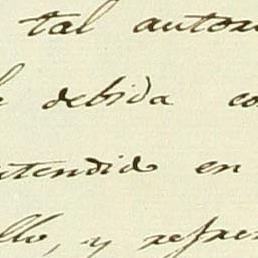 tal autori
debida co
ntendido en
llo, y refren